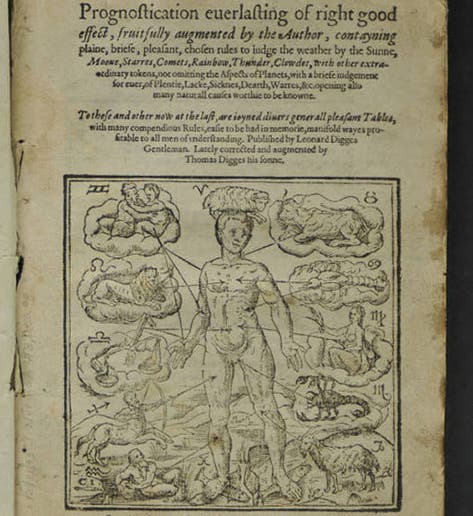 Prognostication euerlasting of right good
effect, fruitfully augmented by the Author, contayning
plaine, briefe, pleasant, chosen rules to iudge the weather by the Sunne,
Moone, Starres, Comets, Rainbow, Thunder, Clowdes, with other extra-
ordinary tokens, not omitting the Aspects of Planets, with a briefe iudgement
for euer, of Plentie, Lacke, Sicknes, Dearth, Warres, &c. opening also
many naturall causes worthie to be knowne.
To these and other now at the last, are ioyned diuers generall pleasant Tables,
with many compendious Rules, easie to be had in memorie, manifold wayes pro-
fitable to all men of vnderstanding. Published by Leonard Digges
Gentleman. Lately corrected and augmented by
Thomas Digges his sonne.